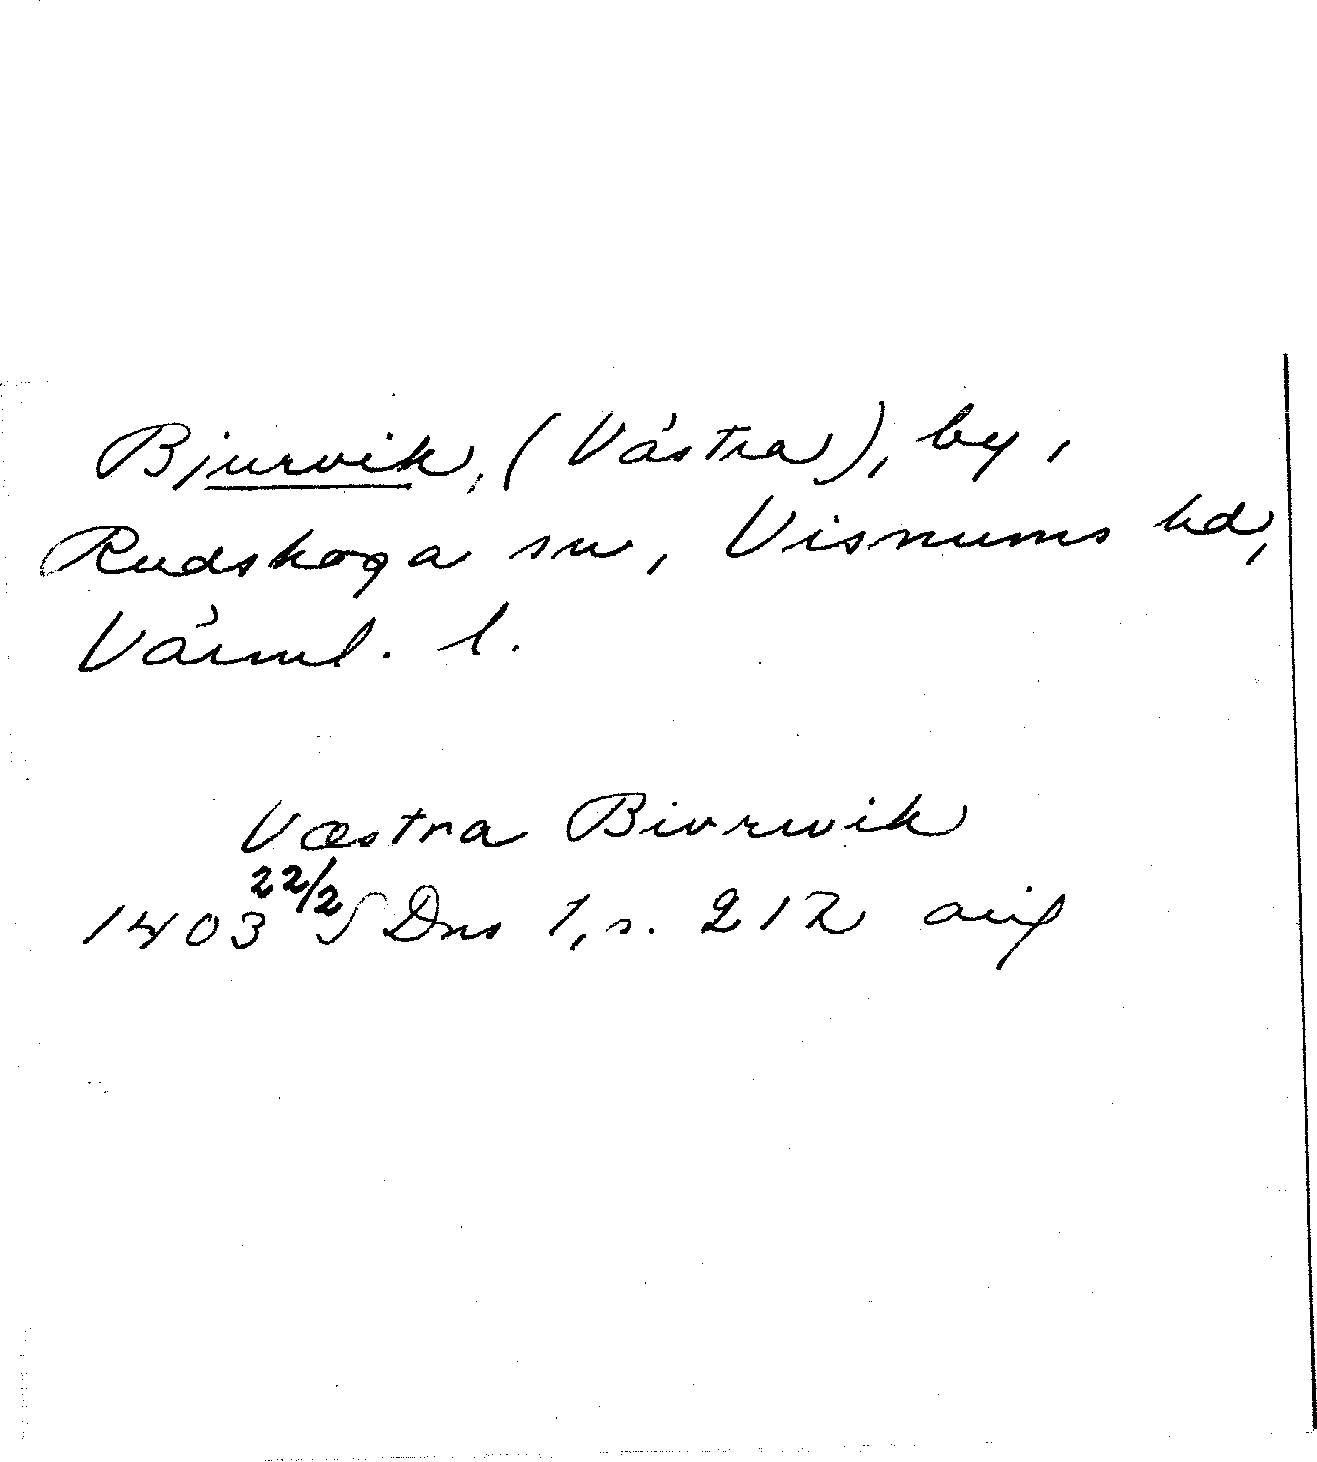 Bjurvik, (Västra), by,
Rudskoga sn, Visnums hd,
Värml. l.
Væstra Bivrwik
1403 22/2 SDns 1, s. 212 avig